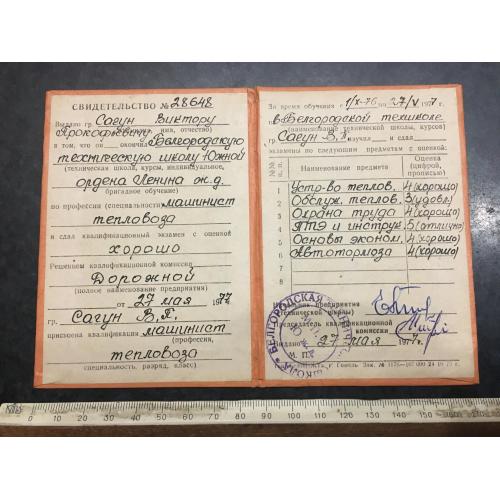 СВИДЕТЕЛЬСТВО № 28648
Выдано гр. Сагун Виктору
Прокофьевичу
имя, отчество)
в том, что он окончил Белгородскую
(бригадное обучение)
техническую школу Южной
(техническая школа, курсы, индивидуальное,
ордена Ленина ж.д.
бригадное обучение)
по профессии (специальности) машинист
тепловоза
и сдал квалификационный экзамен с оценкой
хорошо
Решением квалификационной комиссии
Дорожной
(полное наименование предприятия)
от 27 мая 1977
гр. Сагун В.П.
присвоена квалификация машинист
(профессия,
тепловоза
специальность, разряд, класс)
За время обучения с 1/X-76 по 27/V 1977 г.
в Белгородской техшколе
(наименование технической школы, курсов)
гр. Сагун В.П. изучил и сдал
экзамены по следующим предметам с оценкой:
№ п. п.
Наименование предмета
Оценка (цифрой, прописью)
1 Устр-во теплов. 4 (хорошо)
2 Обслуж. теплов. 3 (удовл)
3 Охрана труда 4 (хорошо)
4 ПТЭ и инструк. 5 (отлично)
5 Основы эконом. 4 (хорошо)
6 Автотормоза 4 (хорошо)
7
8
предприятия
(технической школы)
Председатель квалификационной
комиссии
Выдано 27 мая 1977 г.
М. П.
БЕЛГОРОДСКАЯ
ШКОЛА
г. Гомель Зак.
0 10 20 30 40 50 60 70 80 90 100 110 120 130 140 150